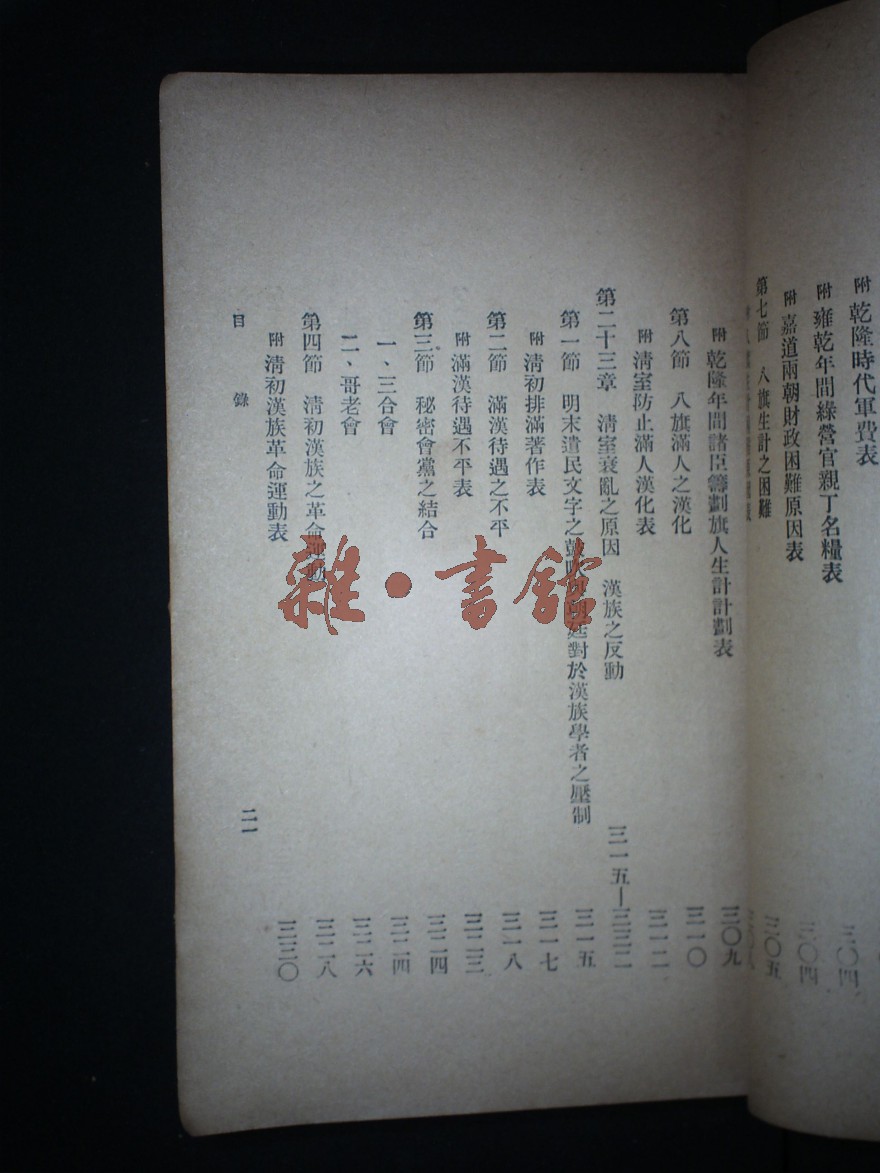 附 乾隆時代軍費表
附 雍乾年間綠營官親丁名糧表 三〇四
附 嘉道兩朝財政困難原因表 三〇四
第七節 八旗生計之困難 三〇五
附 乾隆年間諸臣籌劃旗人生計計劃表 三〇九
第八節 八旗滿人之漢化 三一〇
附 清室防止滿人漢化表 三一二
第二十三章 清室衰亂之原因 漢族之反動 三一五—三三二
第一節 明末遺民文字之鼓吹與朝廷對於漢族學者之壓制 三一五
附 清初排滿著作表 三一七
第二節 滿漢待遇之不平 三一八
附 滿漢待遇不平表 三二三
第三節 秘密會黨之結合 三二四
一、三合會 三二四
二、哥老會 三二六
第四節 清初漢族之革命運動 三二八
附 清初漢族革命運動表 三三〇
目錄 二一
雜·書館